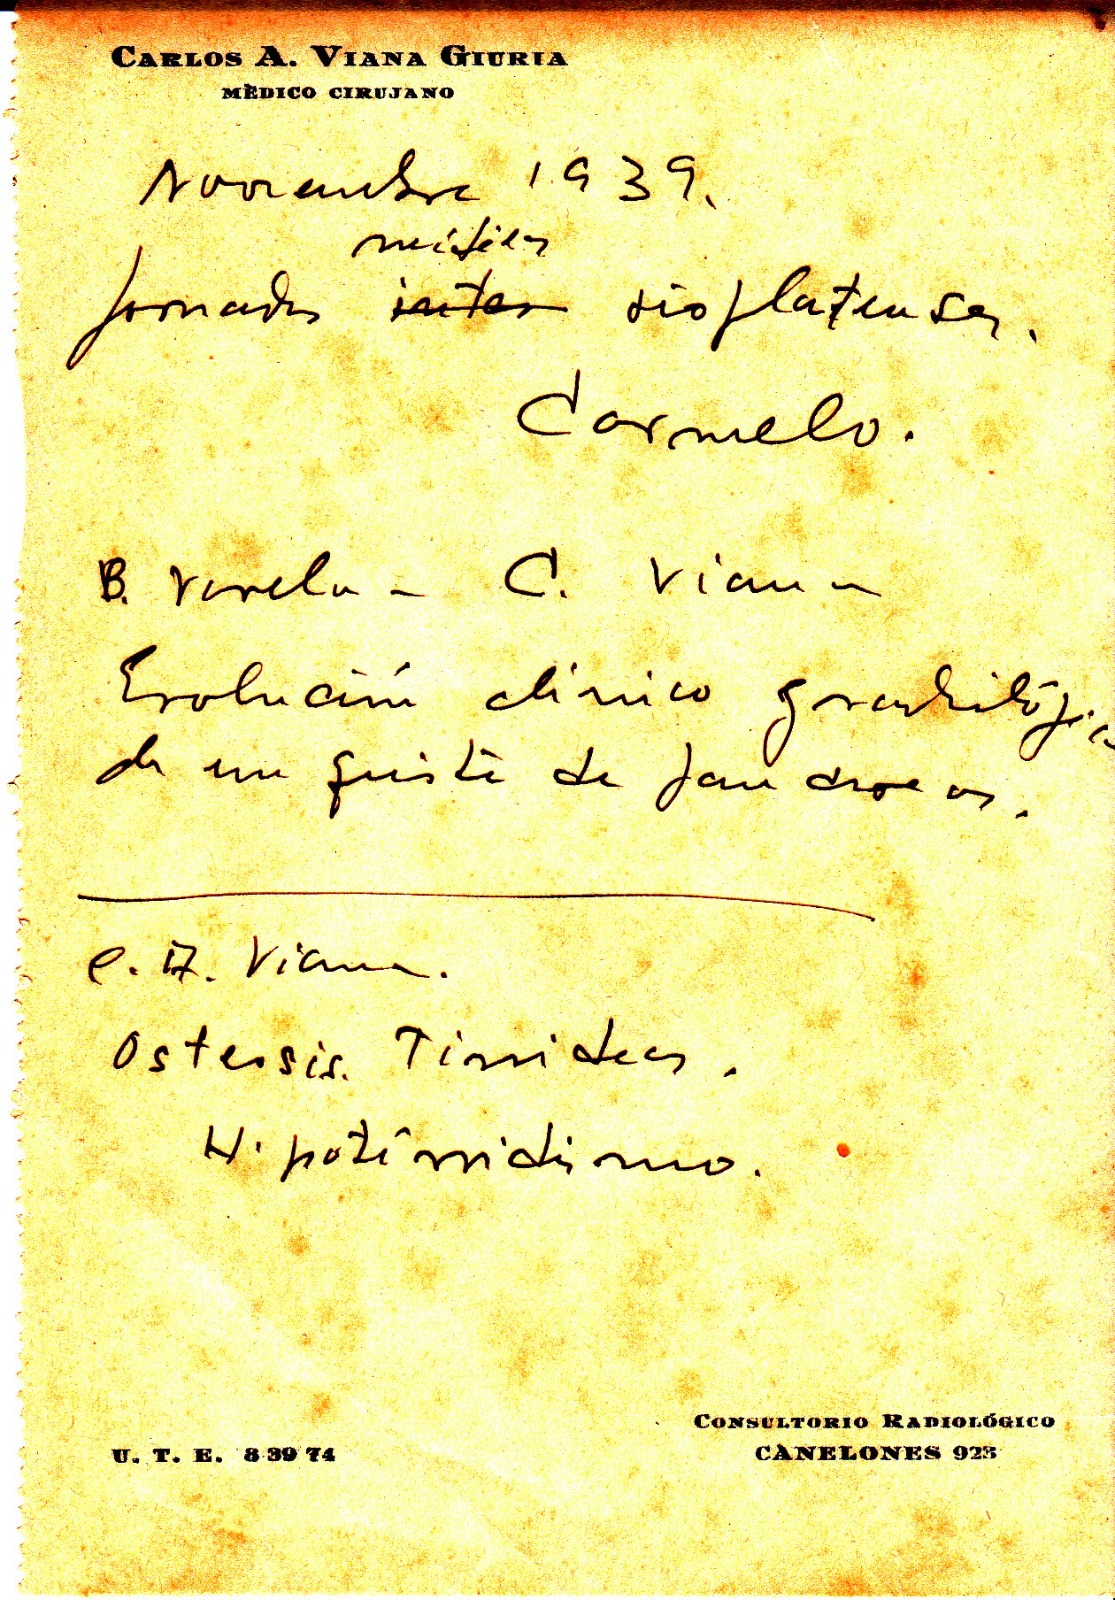 CARLOS A. VIANA GIURIA
MÈDICO CIRUJANO
Noviembre 1939.
médicas
Jornadas inter rioplatenses.
Carmelo.
B. Varela - C. Viana
Evolución clínico y radiológica
de un quiste de
C. A. Viana.
Tiroideas.
Hipotiroidismo.
U. T. E. 8 39 74
CONSULTORIO RADIOLÓGICO
CANELONES 923